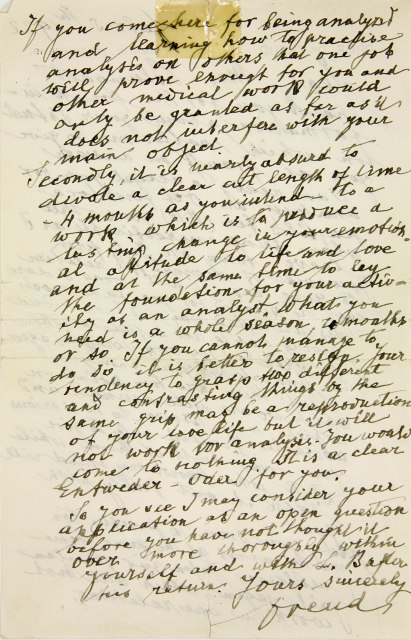 If you come here for being analysed
and learning how to practise
analysis on others that one job
will prove enough for you and
other medical work could
only be granted as far as it
does not interfere with your
main object.
Secondly, it is nearly absurd to
devote a clear cut length of time
- 4 months as you intend - to a
work, which is to produce a
lasting change in your emotion-
al attitude to life and love
and at the same time to lay
the foundation for your activ-
ity as an analyst. What you
need is a whole season, months
or so. If you cannot manage to
do so it is better to resign. Your
tendency to grasp two different
and contrasting things by the
same grip may be a reproduction
of your love life but it will
not work for analysis. You would
come to nothing. It is a clear
Entweder - Oder for you.
So you see I may consider your
application as an open question
before you have not thought it
over more thoroughly within
yourself and with L.
his return. Yours sincerely
Freud